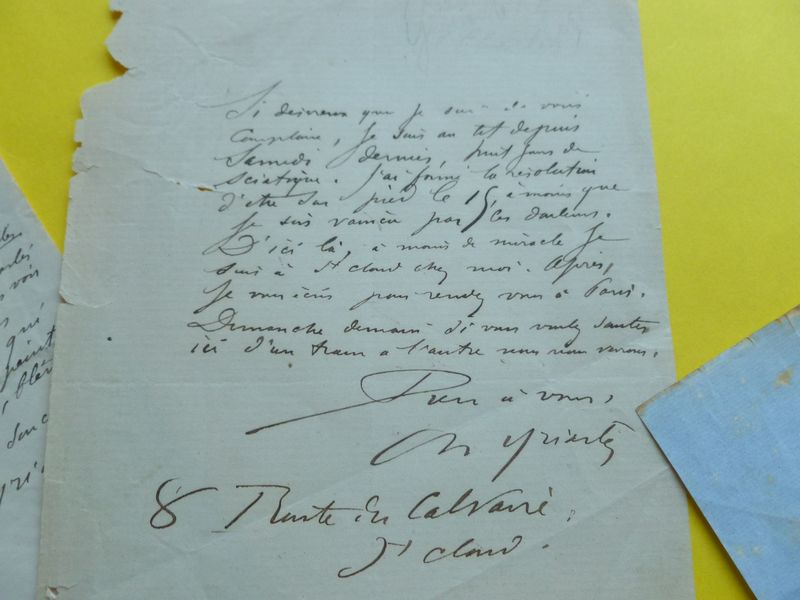 Si desireux que je sois de vous
complaire, je suis au lit depuis
Samedi dernier, huit jours de
sciatique. J'ai formé la résolution
d'être sur pied le 15, à moins que
je sois vaincu par les douleurs.
D'ici là à moins de miracle je
suis à St Cloud chez moi. Après,
je vous écris pour rendez vous à Paris.
Dimanche demain si vous voulez sauter
ici d'un train a l'autre nous nous verrons.
Bien à vous,
Ch Yriarte
8 Route du Calvaire,
St Cloud.